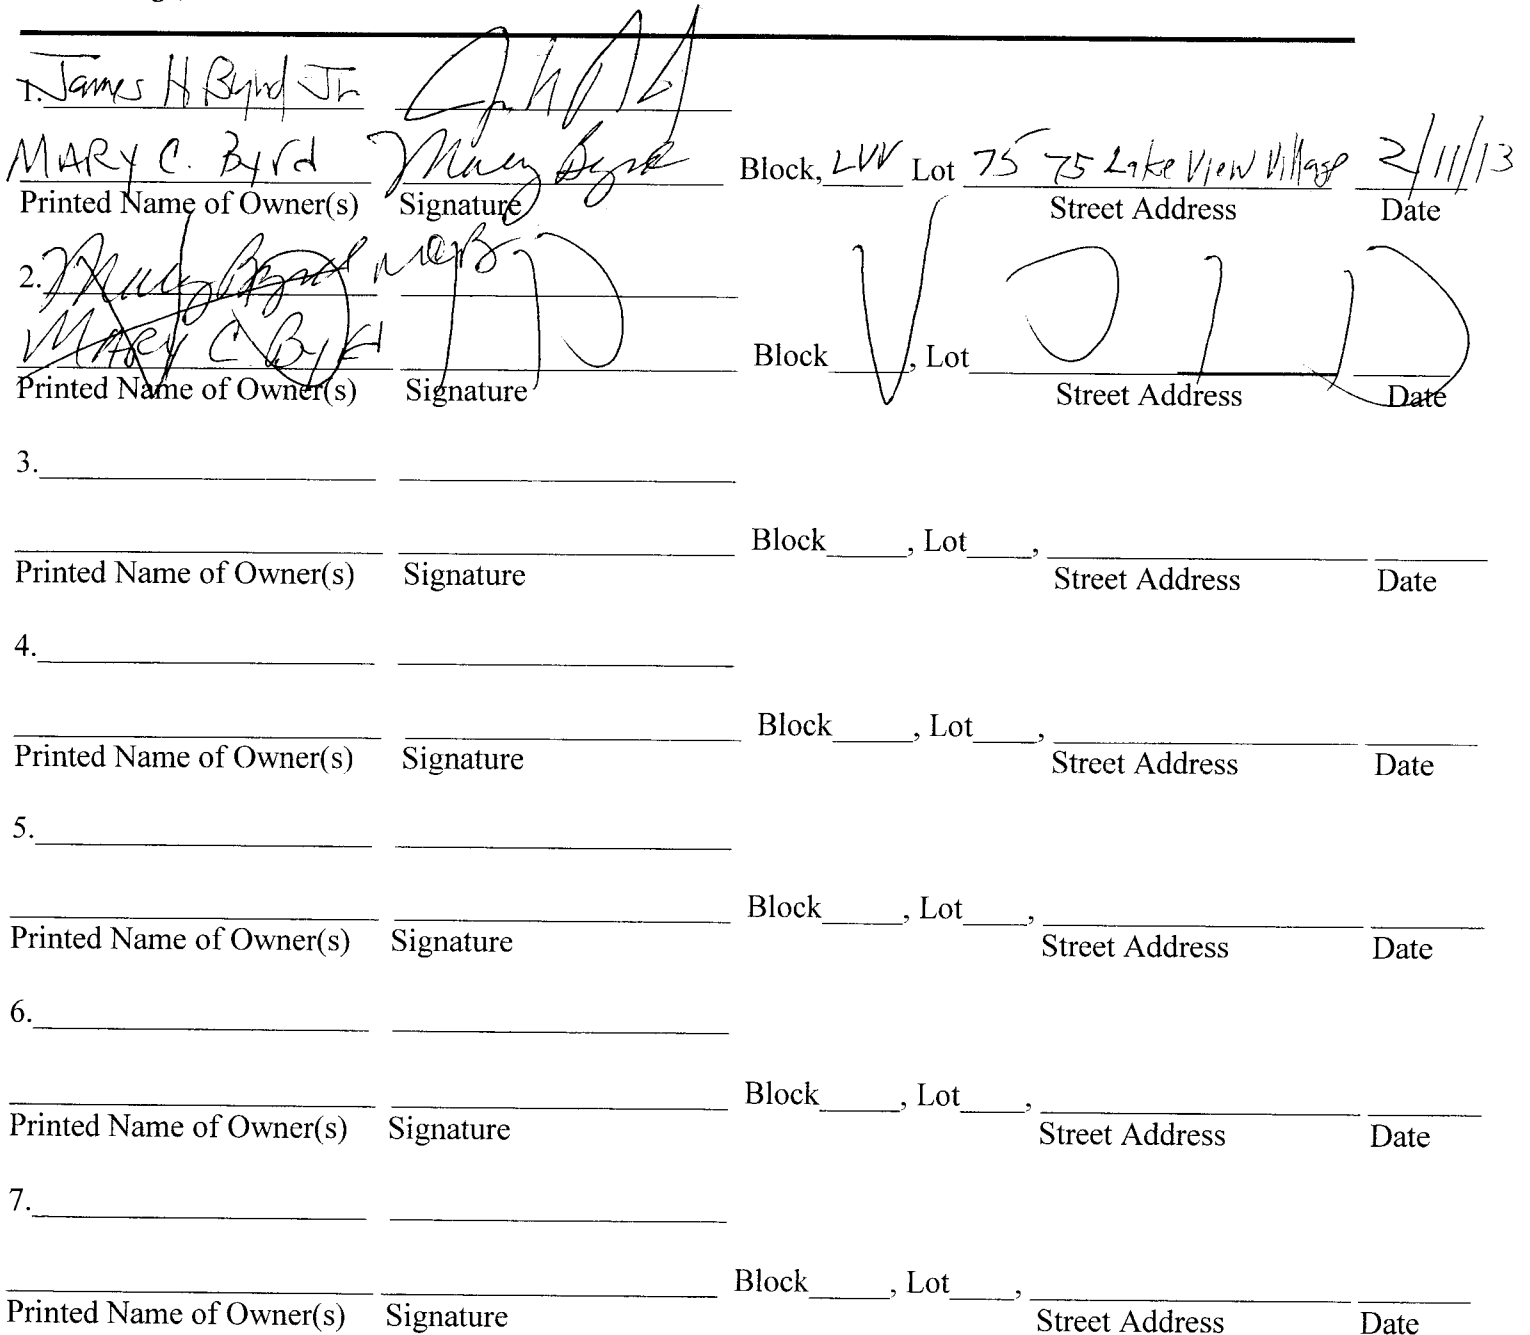 1. James H Byrd Jr
MARY C. Byrd Mary Byrd Block, LVV Lot 75 75 Lake View Village 2/11/13
Printed Name of Owner(s) Signature Street Address Date
2. Mary Byrd MCB
MARY C Byrd VOID Block, Lot VOID
Printed Name of Owner(s) Signature Street Address Date
3.
Block , Lot ,
Printed Name of Owner(s) Signature Street Address Date
4.
Block , Lot ,
Printed Name of Owner(s) Signature Street Address Date
5.
Block , Lot ,
Printed Name of Owner(s) Signature Street Address Date
6.
Block , Lot ,
Printed Name of Owner(s) Signature Street Address Date
7.
Block , Lot ,
Printed Name of Owner(s) Signature Street Address Date